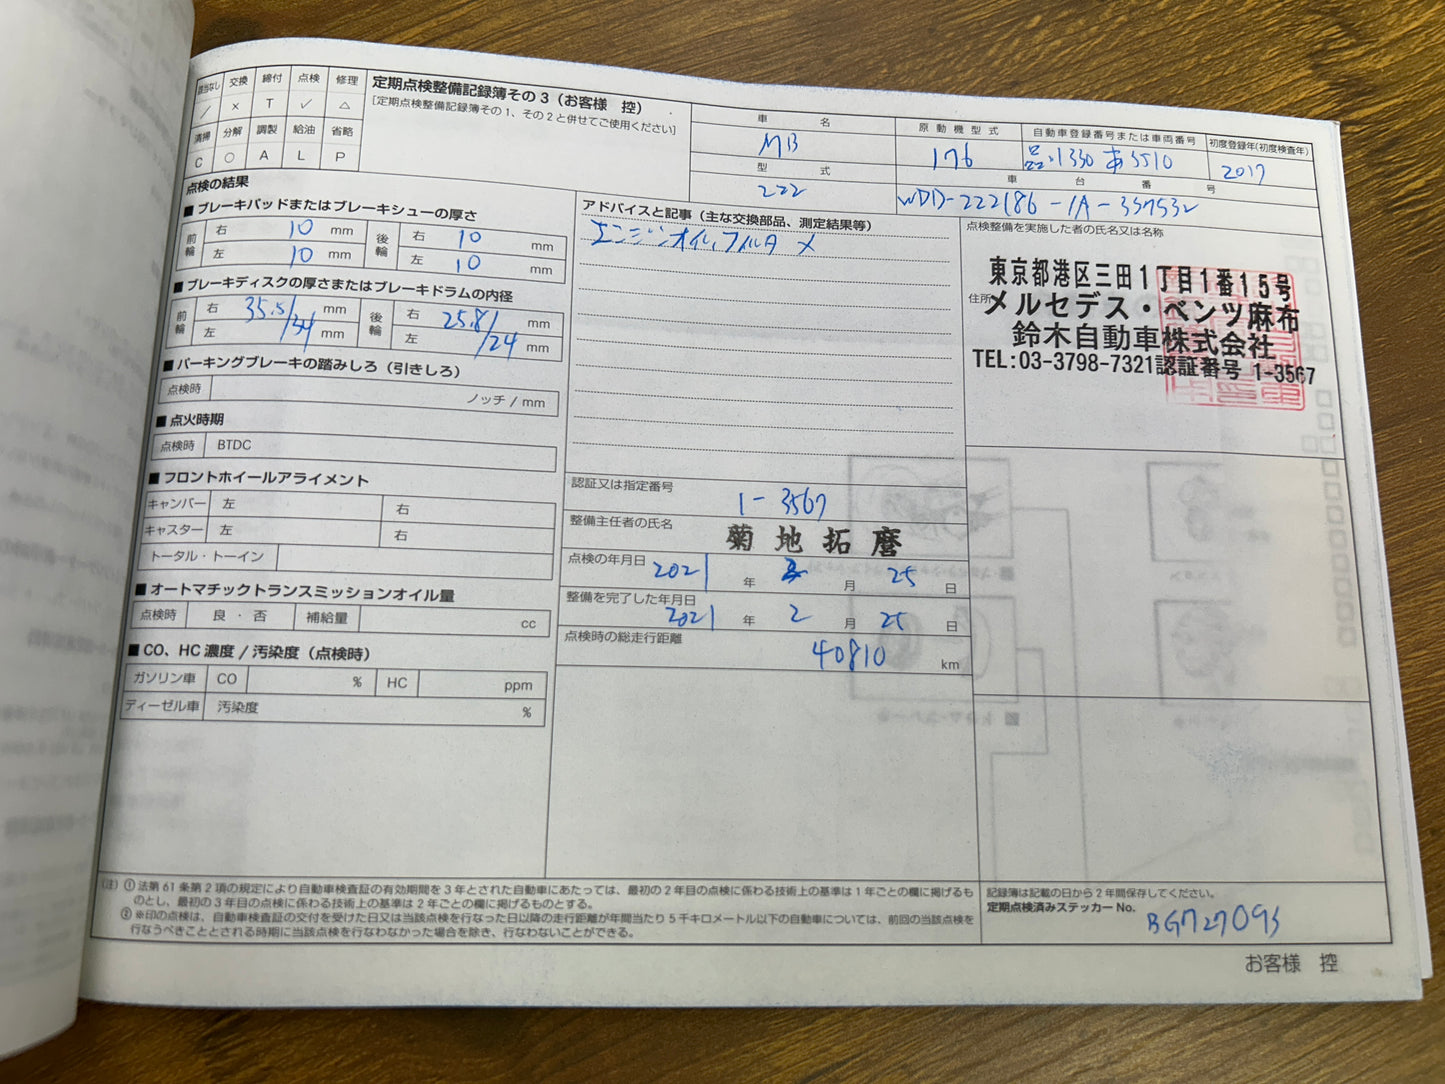 定期点検整備記録簿その3（お客様 控）
［定期点検整備記録簿その1、その2と併せてご使用ください］
該当なし 交換 締付 点検 修理
／ × T ✓ △
清掃 分解 調製 給油 省略
C ○ A L P
車名
MB
原動機型式
176
自動車登録番号または車両番号
品川330 あ5510
初度登録年（初度検査年）
2017
型式
222
車台番号
WDD-222186-1A-337532
点検の結果
■ ブレーキパッドまたはブレーキシューの厚さ
前輪 右 10 mm 後輪 右 10 mm
左 10 mm 左 10 mm
■ ブレーキディスクの厚さまたはブレーキドラムの内径
前輪 右 35.5/ mm 後輪 右 25.8/ mm
左 /34 mm 左 /24 mm
■ パーキングブレーキの踏みしろ（引きしろ）
点検時 ノッチ / mm
■ 点火時期
点検時 BTDC
■ フロントホイールアライメント
キャンバー 左 右
キャスター 左 右
トータル・トーイン
■ オートマチックトランスミッションオイル量
点検時 良・否 補給量 cc
■ CO、HC 濃度 / 汚染度（点検時）
ガソリン車 CO % HC ppm
ディーゼル車 汚染度 %
アドバイスと記事（主な交換部品、測定結果等）
エンジンオイル，フィルタ ×
認証又は指定番号
1-3567
整備主任者の氏名
菊地拓磨
点検の年月日
2021 年 2 月 25 日
整備を完了した年月日
2021 年 2 月 25 日
点検時の総走行距離
40810 km
点検整備を実施した者の氏名又は名称
住所
東京都港区三田1丁目1番15号
メルセデス・ベンツ麻布
鈴木自動車株式会社
TEL:03-3798-7321認証番号 1-3567
（注）① 法第61条第2項の規定により自動車検査証の有効期間を3年とされた自動車にあたっては、最初の2年目の点検に係わる技術上の基準は1年ごとの欄に掲げるも
のとし、最初の3年目の点検に係わる技術上の基準は2年ごとの欄に掲げるものとする。
② ※印の点検は、自動車検査証の交付を受けた日又は当該点検を行なった日以降の走行距離が年間当たり5千キロメートル以下の自動車については、前回の当該点検を
行なうべきこととされる時期に当該点検を行なわなかった場合を除き、行なわないことができる。
記録簿は記載の日から2年間保存してください。
定期点検済みステッカーNo.
BG727093
お客様 控